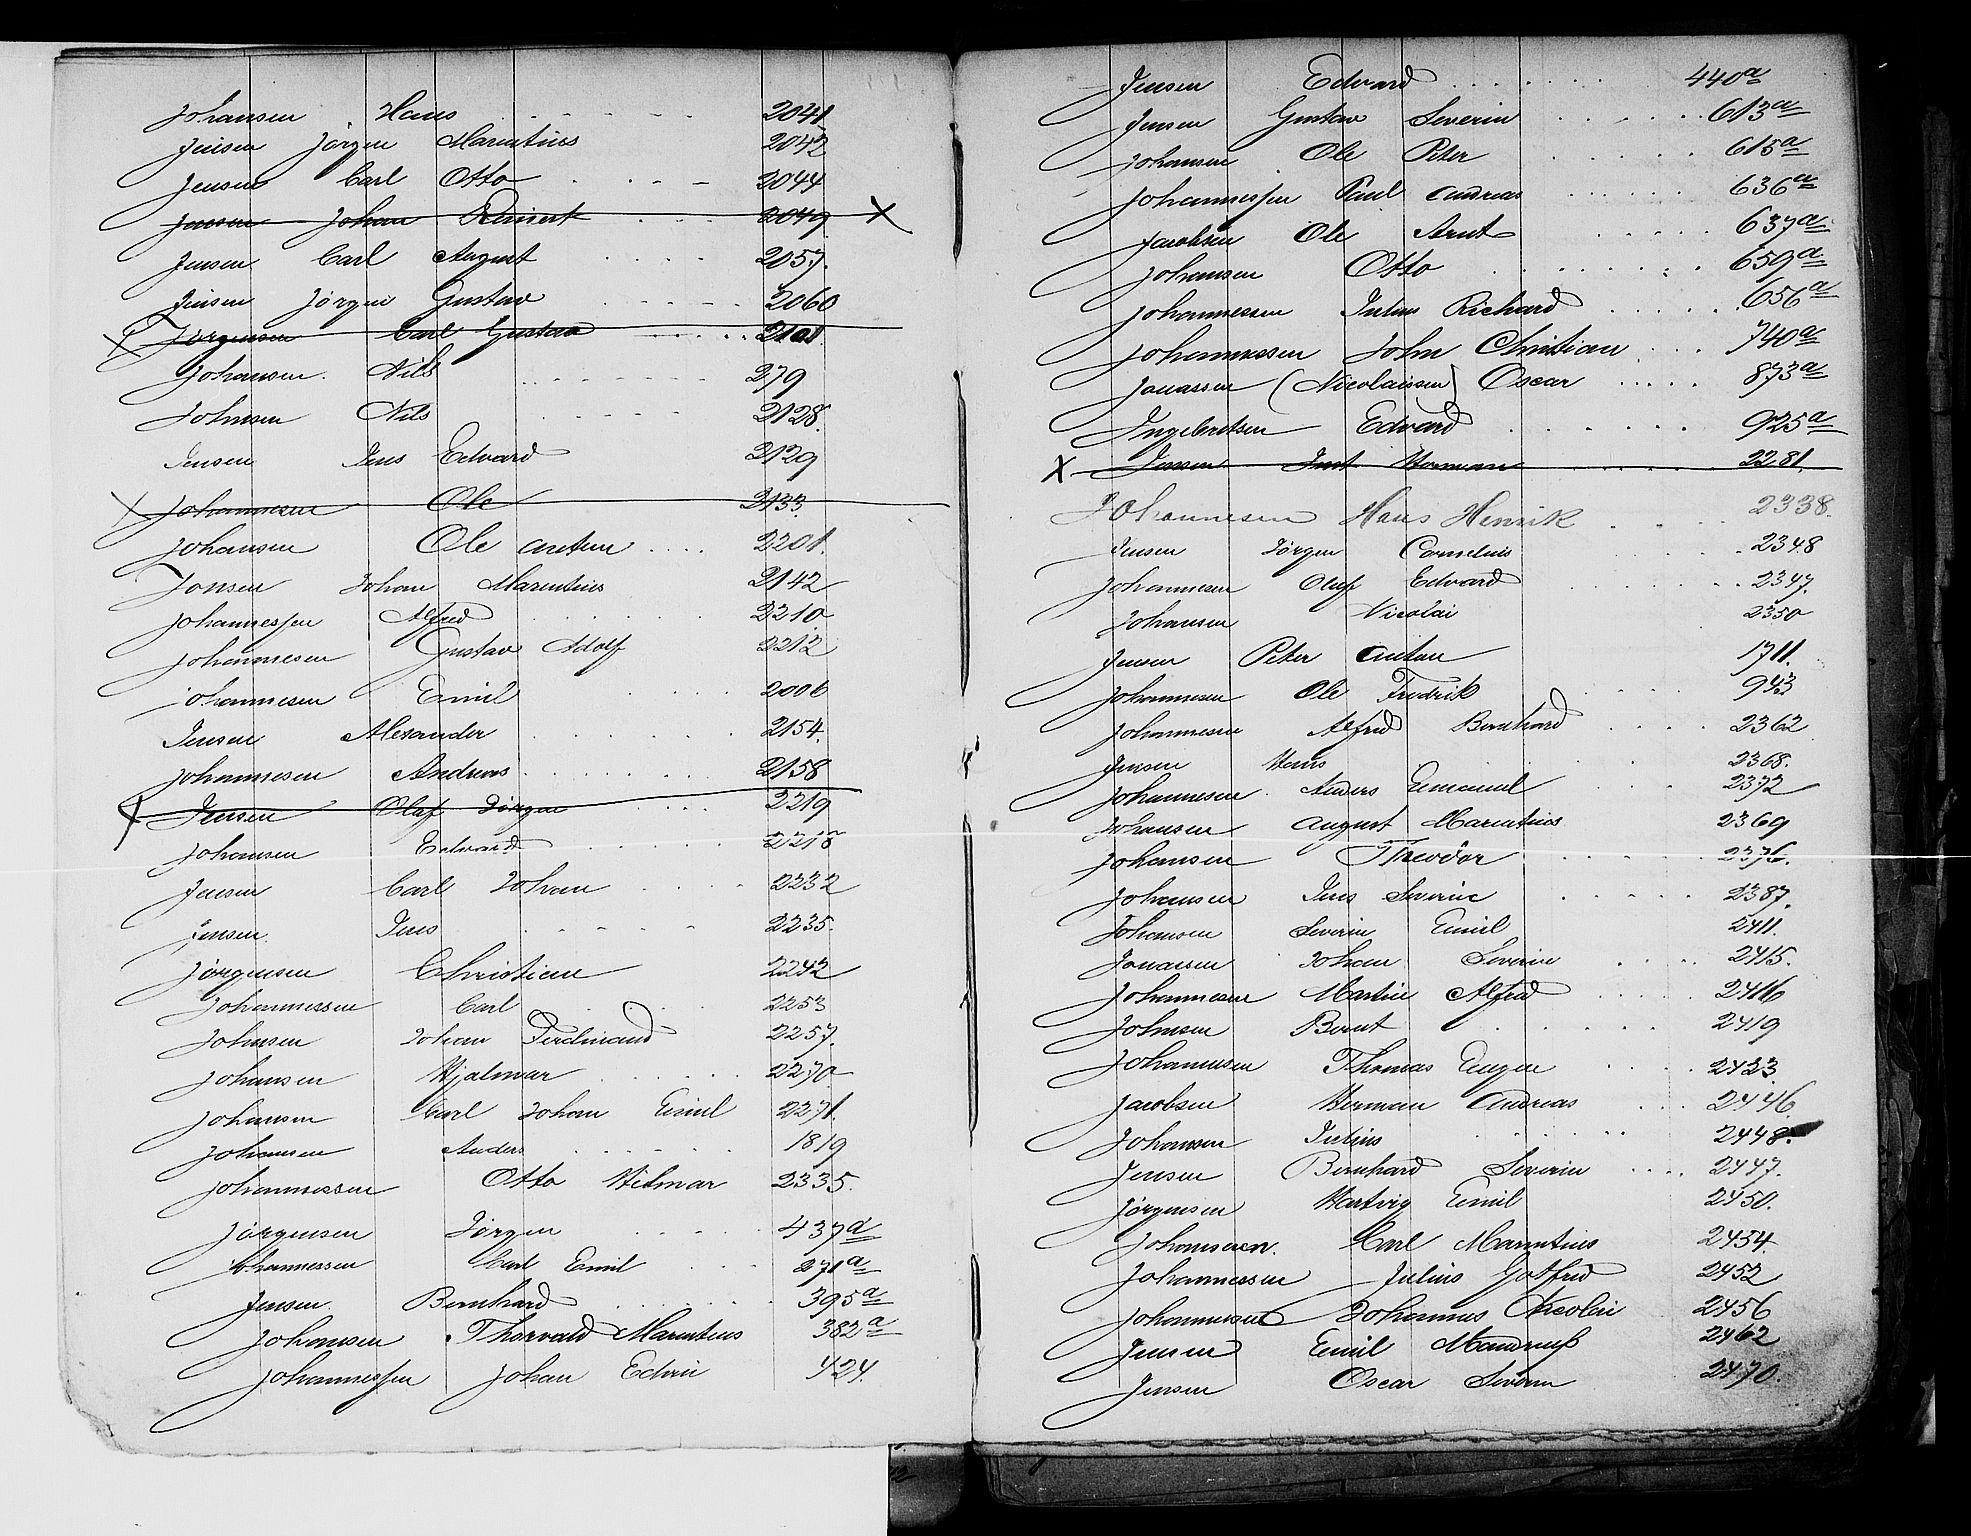 Johansen Hans 2041
Jensen Jörgen Marentius 2042
Jensen Carl Otto 2044
Jensen Johan Reinert 2049 X
Jensen Carl August 2057.
Jensen Jörgen Gustav 2060
X Jörgensen Carl Gustav 2101
Johansen. Nils 279
Johnsen Nils 2128.
Jensen Jens Edvard 2129
X Johannesen Ole 2133.
Johansen Ole Anton 2201.
Jonsen Johan Marentius 2142
Johannessen Alfred 2210
Johannesen Gustav Adolf 2212
Johannesen Emil 2006
Jensen Alexander 2154.
Johannesen Andreas 2158
X Jensen Olaf Jörgen 2219
Johansen Edvard 2218
Jensen Carl Johan 2232
Jensen. Jens 2235.
Jørgensen Christian 2242
Johannessen Carl 2253
Johnsen Johan Ferdinand 2257.
Johansen Hjalmar 2270
Johansen Carl Johan Emil 2271.
Johansen Anders 1819
Johannessen Otto Hilmar 2335.
Jørgensen Jørgen 437a
Johannessen Carl Emil 271a
Jensen. Bernhard 395a
Johansen Thorvald Marentius 382a
Johannessen Johan Edvin 424.
Jensen Edvard 440a
Jensen Gustav Severin 613a
Johansen Ole Peter 615a
Johannessen Paul Andreas 636a
Jacobsen Ole Arnt 637a
Johansen Otto 659a
Johannessen Julius Richard 656a
Johannessen John Christian 740a
Jonassen (Nicolaissen) Oscar 873a
Ingebretsen Edvard 925a
X Jensen Herman 2281
Johannesen Hans Henrik 2338.
Jensen Jörgen Cornelius 2348
Johannesen Oluf Edvard 2347.
Johansen Nicolai 2350
Jensen Peter Anton 1711.
Johannesen Ole Fredrik 943
Johannesen Alfred Bernhard 2362
Jensen Hans 2368.
Johannesen. Anders Emanuel 2372
Johansen August Marentius 2369
Johansen Theodor 2376.
Johansen Jens Severin 2387.
Johansen Severin Emil 2411.
Jonassen Johan Severin 2415.
Johannesen Martin Alfred 2416
Johnsen Bernt 2419
Johannesen Thomas Eugen 2423
Jacobsen Herman Andreas 2446.
Johansen Julius 2448.
Jensen Bernhard Severin 2447.
Jørgensen Hartvig Emil 2450.
Johansen. Carl Marentius 2454.
Johannessen Julius Gotfred 2452
Johannesen Johannes Nicolai 2456
Jensen Emil Mandrup 2462
Jensen Oscar Severin 2470.